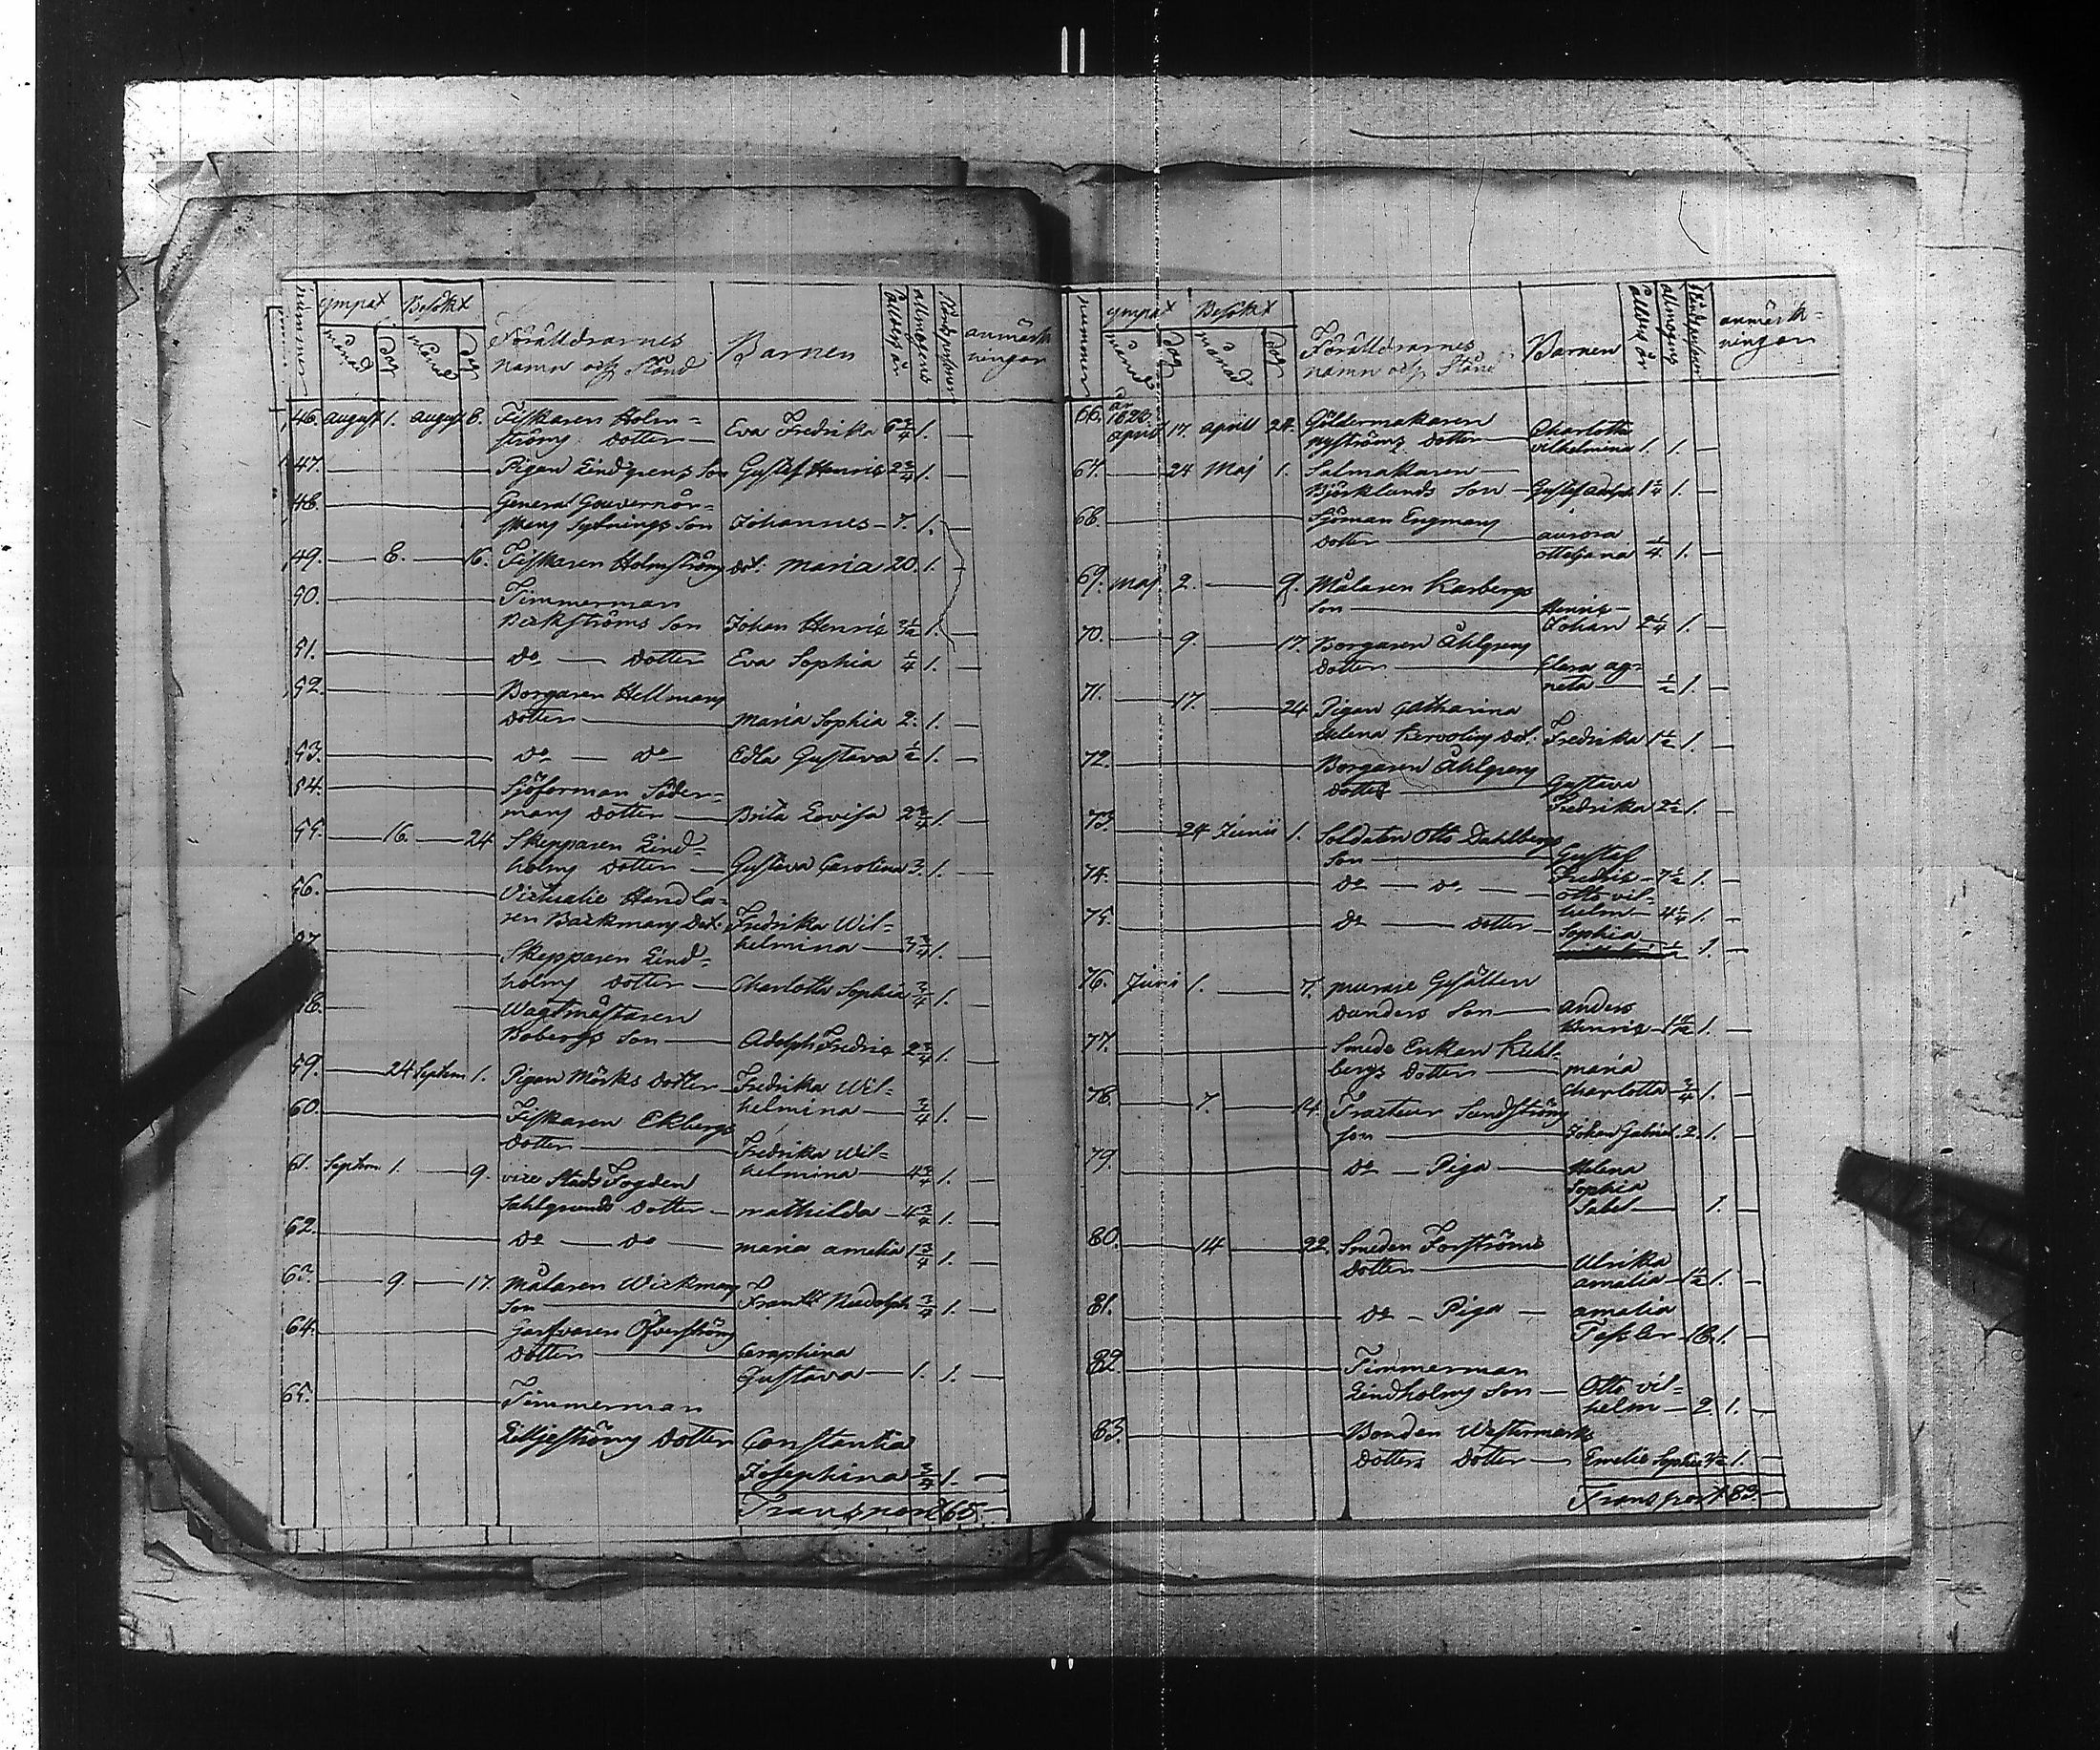 nummer ympat Besökt Föräldrarnes Barnen ålders år allmogens Ståndspersoner anmärk-
månad dag månad dag namn och Stånd ningar
46. august 1. august 8. Fiskaren Holm-
ströms dotter — Eva Fredrika 6 3/4 1. —
47. Pigan Lindgrens Son Gustaf Henric 2 3/4 1. —
48. General Gouvernörs-
Sytnings Son Johannes — 7. 1. —
49. — 8. — 16. Fiskaren Holmströms dot. maria 20. 1. —
50. Timmerman
Bäckströms Son Johan Henric 3 1/2 1. —
51. do — dotter Eva Sophia 1/4 1. —
52. Borgaren Hellmans
dotter — maria Sophia 2. 1. —
53. do — do Edla Gustava 1/2 1. —
54. Sjöforman Söder-
mans dotter — Brita Lovisa 2 3/4 1. —
55. — 16. — 24 Skepparen Lind-
holms dotter — Gustava Carolina 3. 1. —
56. Victualie Handla-
ren Backmans Dot. Fredrika Wil-
helmina — 3 3/4 1.
57. Skepparen Lind-
holms dotter — Charlotta Sophia 3/4 1. —
58. Wagtmästaren
Bobergs Son — Adolph Fredric 2 3/4 1. —
59. — 24 Septem 1. Pigan Mörks dotter — Fredrika Wil-
helmina — 3/4 1. —
60. Fiskaren Ekbergs
dotter — Fredrika Wil-
helmina — 4 3/4 1.
61. Septem 1. — 9. vice Stads Fogden
Sahlgrunds dotter — mathilda — 4 3/4 1. —
62. do — do — maria amelia 1 3/4 1. —
63. — 9. — 17. Målaren Wickmans
Son — Frantz Rudolph 3/4 1. —
64. Garfvaren Öfverströms
dotter — Ceraphina
Gustava — 1. 1. —
65. Timmerman
Liljeströms Dotter Constantia
Josephina 3/4 1. —
Transport 65. —
nummer ympat Besökt Föräldrarnes Barnen ålders år allmogens Ståndspersoner anmärk-
månad dag månad dag namn och Stånd ningar
66. år 1828.
april 17. april 24. Göldermakaren
nyströms dotter — Charlotta
vilhelmina 1. 1. —
67. — 24 Maj 1. Salmakaren —
Björklunds Son — Gustaf adolph 1 3/4 1. —
68. Sjöman Engmans
dotter — aurora
otteljana 1/4 1. —
69. Maj 2. — 9. Målaren Karbergs
Son — Henric
Johan 2 1/4 1. —
70. — 9. — 17. Borgaren Åhlgrens
dotter — Clara ag-
neta — 1/2 1. —
71. — 17. — 24 Pigan Catharina
Helena Dot. Fredrika 1 1/2 1. —
72. Borgaren Åhlgrens
dotter — Gustava
Fredrika 2 1/2 1. —
73. — 24 Junii 1. Soldaten Otto Dahlbergs
Son — Gustaf
Fredric — 7 1/2 1. —
74. do — do — otto vil-
helm — 4 1/4 1. —
75. do — dotter — Sophia
1/2 1. —
76. Juni 1. — 7. murare Gesällen
Danders Son — anders
Henric — 1 1/2 1. —
77. Smeds Enkan Kuhl-
bergs dotter — maria
Charlotta 3/4 1. —
78. — 7. — 14. Tracteur Sandströms
son — Johan Gabriel 2. 1. —
79. do — Piga — Helena
Sophia
Sabel — 1. —
80. — 14 — 22. Smeden Forströms
dotter — Ulrika
amalia — 1 1/2 1. —
81. do — Piga — amalia
Tesler 18. 1. —
82. Timmerman
Lindholms Son — Otto vil-
helm — 2. 1. —
83. Bonden Westermarks
dotters dotter — Emelie Sophia 3 1/2 1. —
Transport 83. —